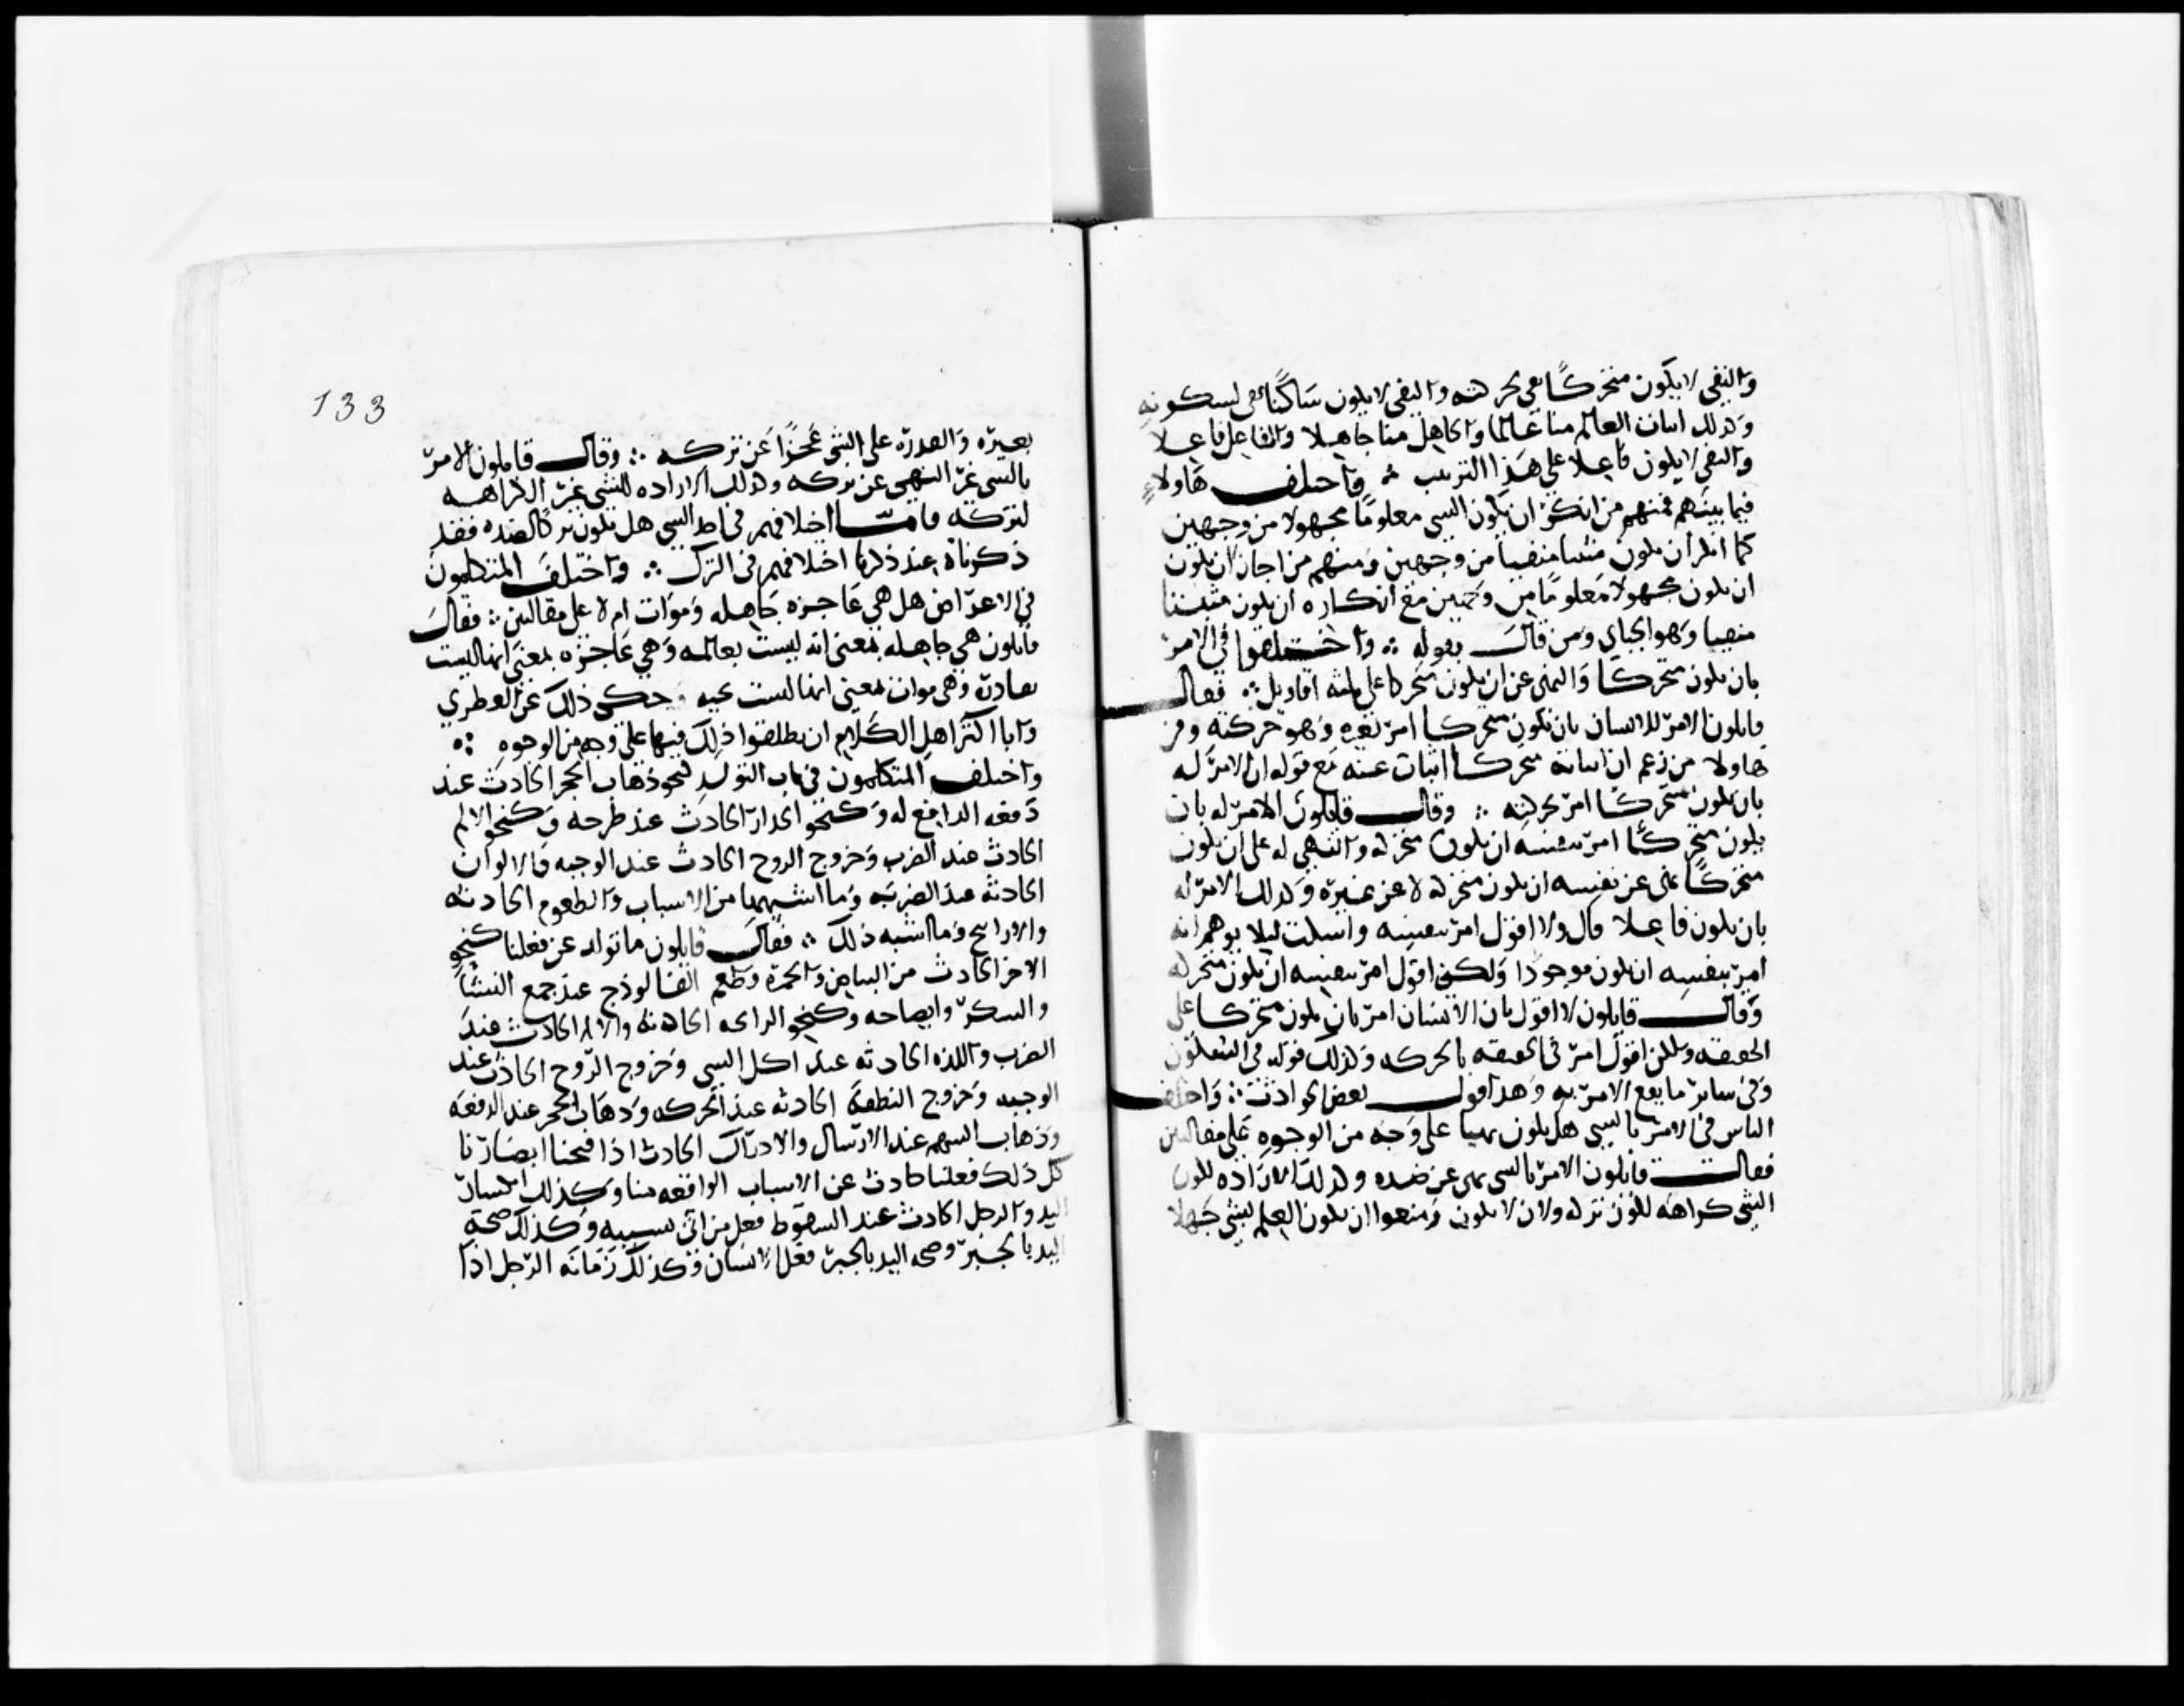 والنفي لا يكون متحركًا نفي حركته والنفي لا يكون ساكنًا نفي لسكونه
وكذلك اثبات العالم منا عالما والجاهل منا جاهلا والفاعل فاعلا
والنفي لا يكون فاعلا على هذا الترتيب ∴ واختلف هاولاء
فيما بينهم فمنهم من انكر ان يكون الشي معلومًا مجهولا من وجهين
كما انكر ان يكون مثبتا منفيا من وجهين ومنهم من اجاز ان يكون
ان يكون مجهولا معلومًا من وجهين مع انكاره ان يكون مثبتا
منفيا وهو الجباي ومن قال بقوله ∴ واختلفوا في الامر
بان يكون متحركًا والنهي عن ان يكون متحركا على ثلثه اقاويل ∴ فقال
قايلون الامر للانسان بان يكون متحركا امر بغيره وهو حركته ومن
هاولا من زعم ان اثباته متحركا اثبات عينه مع قوله ان الامر له
بان يكون متحركًا امر بحركته ∴ وقال قايلون الامر له بان
يكون متحركًا امر بنفسه ان يكون متحركه والنهي له على ان يكون
متحركًا نهي عن نفسه ان يكون متحركه لا عن غيره وكذلك الامر له
بان يكون فاعلا قال ولا اقول امر بنفسه واسكت ليلا يوهم انه
امر بنفسه ان يكون موجودًا ولكن اقول امر بنفسه ان يكون متحركه
وقال قايلون لا اقول بان الانسان امر بان يكون متحركا على
الحقيقه ولكن اقول امر في الحقيقه بالحركه وكذلك قوله في السكون
وفي ساير ما يقع الامر به وهذا قول بعض الحوادث ∴ واختلف
الناس في الامر بالشي هل يكون نهيا على وجه من الوجوه على مقالتين
فقال قايلون الامر بالشي نهي عن ضده وكذلك الاراده لكون
الشي كراهه لكون تركه ولان لا يكون ومنعوا ان يكون العلم بشي جهلا
133
بغيره والقدره على الشي عجزًا عن تركه ∴ وقال قايلون الامر
بالشي غير النهي عن تركه وكذلك الاراده للشي غير الكراهه
لتركه فامّا اختلافهم في الشي هل يكون تركًا لضده فقد
ذكرناه عند ذكرنا اختلافهم في الترك ∴ واختلف المتكلمون
في الاعراض هل هي عاجزه جاهله وموات ام لا على مقالتين ∴ فقال
قايلون هي جاهله بمعنى انه ليست بعالمه وهي عاجزه بمعنى انها ليست
بقادره وهي موات بمعنى انها ليست بحيه حكي ذلك عن العطوي
وابا اكثر اهل الكلام ان يطلقوا ذلك فيها على وجه من الوجوه ∴
واختلف المتكلمون في باب التولد كنحو ذهاب الحجر الحادث عند
دفعه الدافع له وكنحو انحدار الحادث عند طرحه وكنحو الالم
الحادث عند الضرب وخروج الروح الحادث عند الوجبه والالوان
الحادثه عند الضربه وما اشبهها من الاسباب والطعوم الحادثه
والاراييح وما اشبه ذلك ∴ فقال قايلون ما تولد عن فعلنا كنحو
الاخر الحادث من البياض والحمره وطعم الفالوذج عند جمع النشا
والسكر وانضاجه وكنحو الرايحه الحادثه والالم الحادث عند
الضرب واللذه الحادثه عند اكل الشي وخروج الروح الحادث عند
الوجبه وخروج النطفه الحادثه عند الحركه وذهاب الحجر عند الدفعه
وذهاب السهم عند الارسال والادراك الحادث اذا فتحنا ابصارنا
كل ذلك فعلنا حادث عن الاسباب الواقعه منا وكذلك انكسار
اليد والرجل الحادث عند السقوط فعل من اتى بسببه وكذلك صحة
اليد بالجبر وصحه اليد بالجبر فعل الانسان وكذلك زمانه الرجل اذا